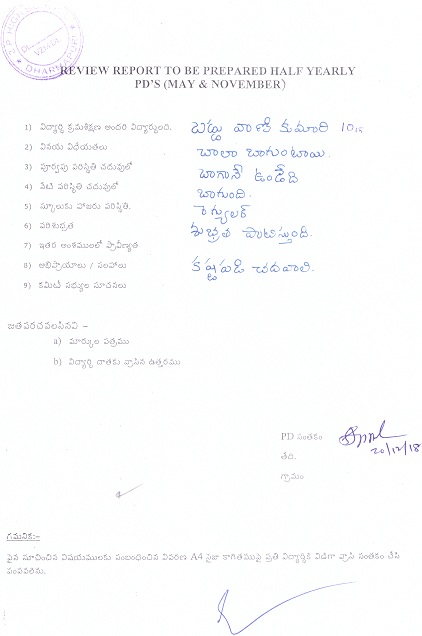 Z.P HIGH
DHARMAPURI
REVIEW REPORT TO BE PREPARED HALF YEARLY
PD'S (MAY & NOVEMBER)
1) విద్యార్ధి క్రమశిక్షణ అందరి విద్యార్థులంది. బడ్డు వాణి కుమారి 10th
2) వినయ విధేయతలు చాలా బాగుంటాయి.
3) పూర్వపు పరిస్థితి చదువులో బాగానే ఉండేది
4) నేటి పరిస్థితి చదువులో బాగుంది.
5) స్కూలుకు హాజరు పరిస్థితి. రెగ్యులర్
6) పరిశుభ్రత శుభ్రత పాటిస్తుంది.
7) ఇతర అంశములలో ప్రావీణ్యత
8) అభిప్రాయాలు / సలహాలు కష్టపడి చదవాలి.
9) కమిటీ సభ్యుల సూచనలు
జతపరచవలసినవి –
a) మార్కుల పత్రము
b) విద్యార్ధి దాతకు వ్రాసిన ఉత్తరము
PD సంతకం
20/12/18
తేది.
గ్రామం
గమనిక:-
పైన సూచించిన విషయములకు సంబంధించిన వివరణ A4 సైజు కాగితముపై ప్రతి విద్యార్థికి విడిగా వ్రాసి సంతకం చేసి
పంపవలెను.